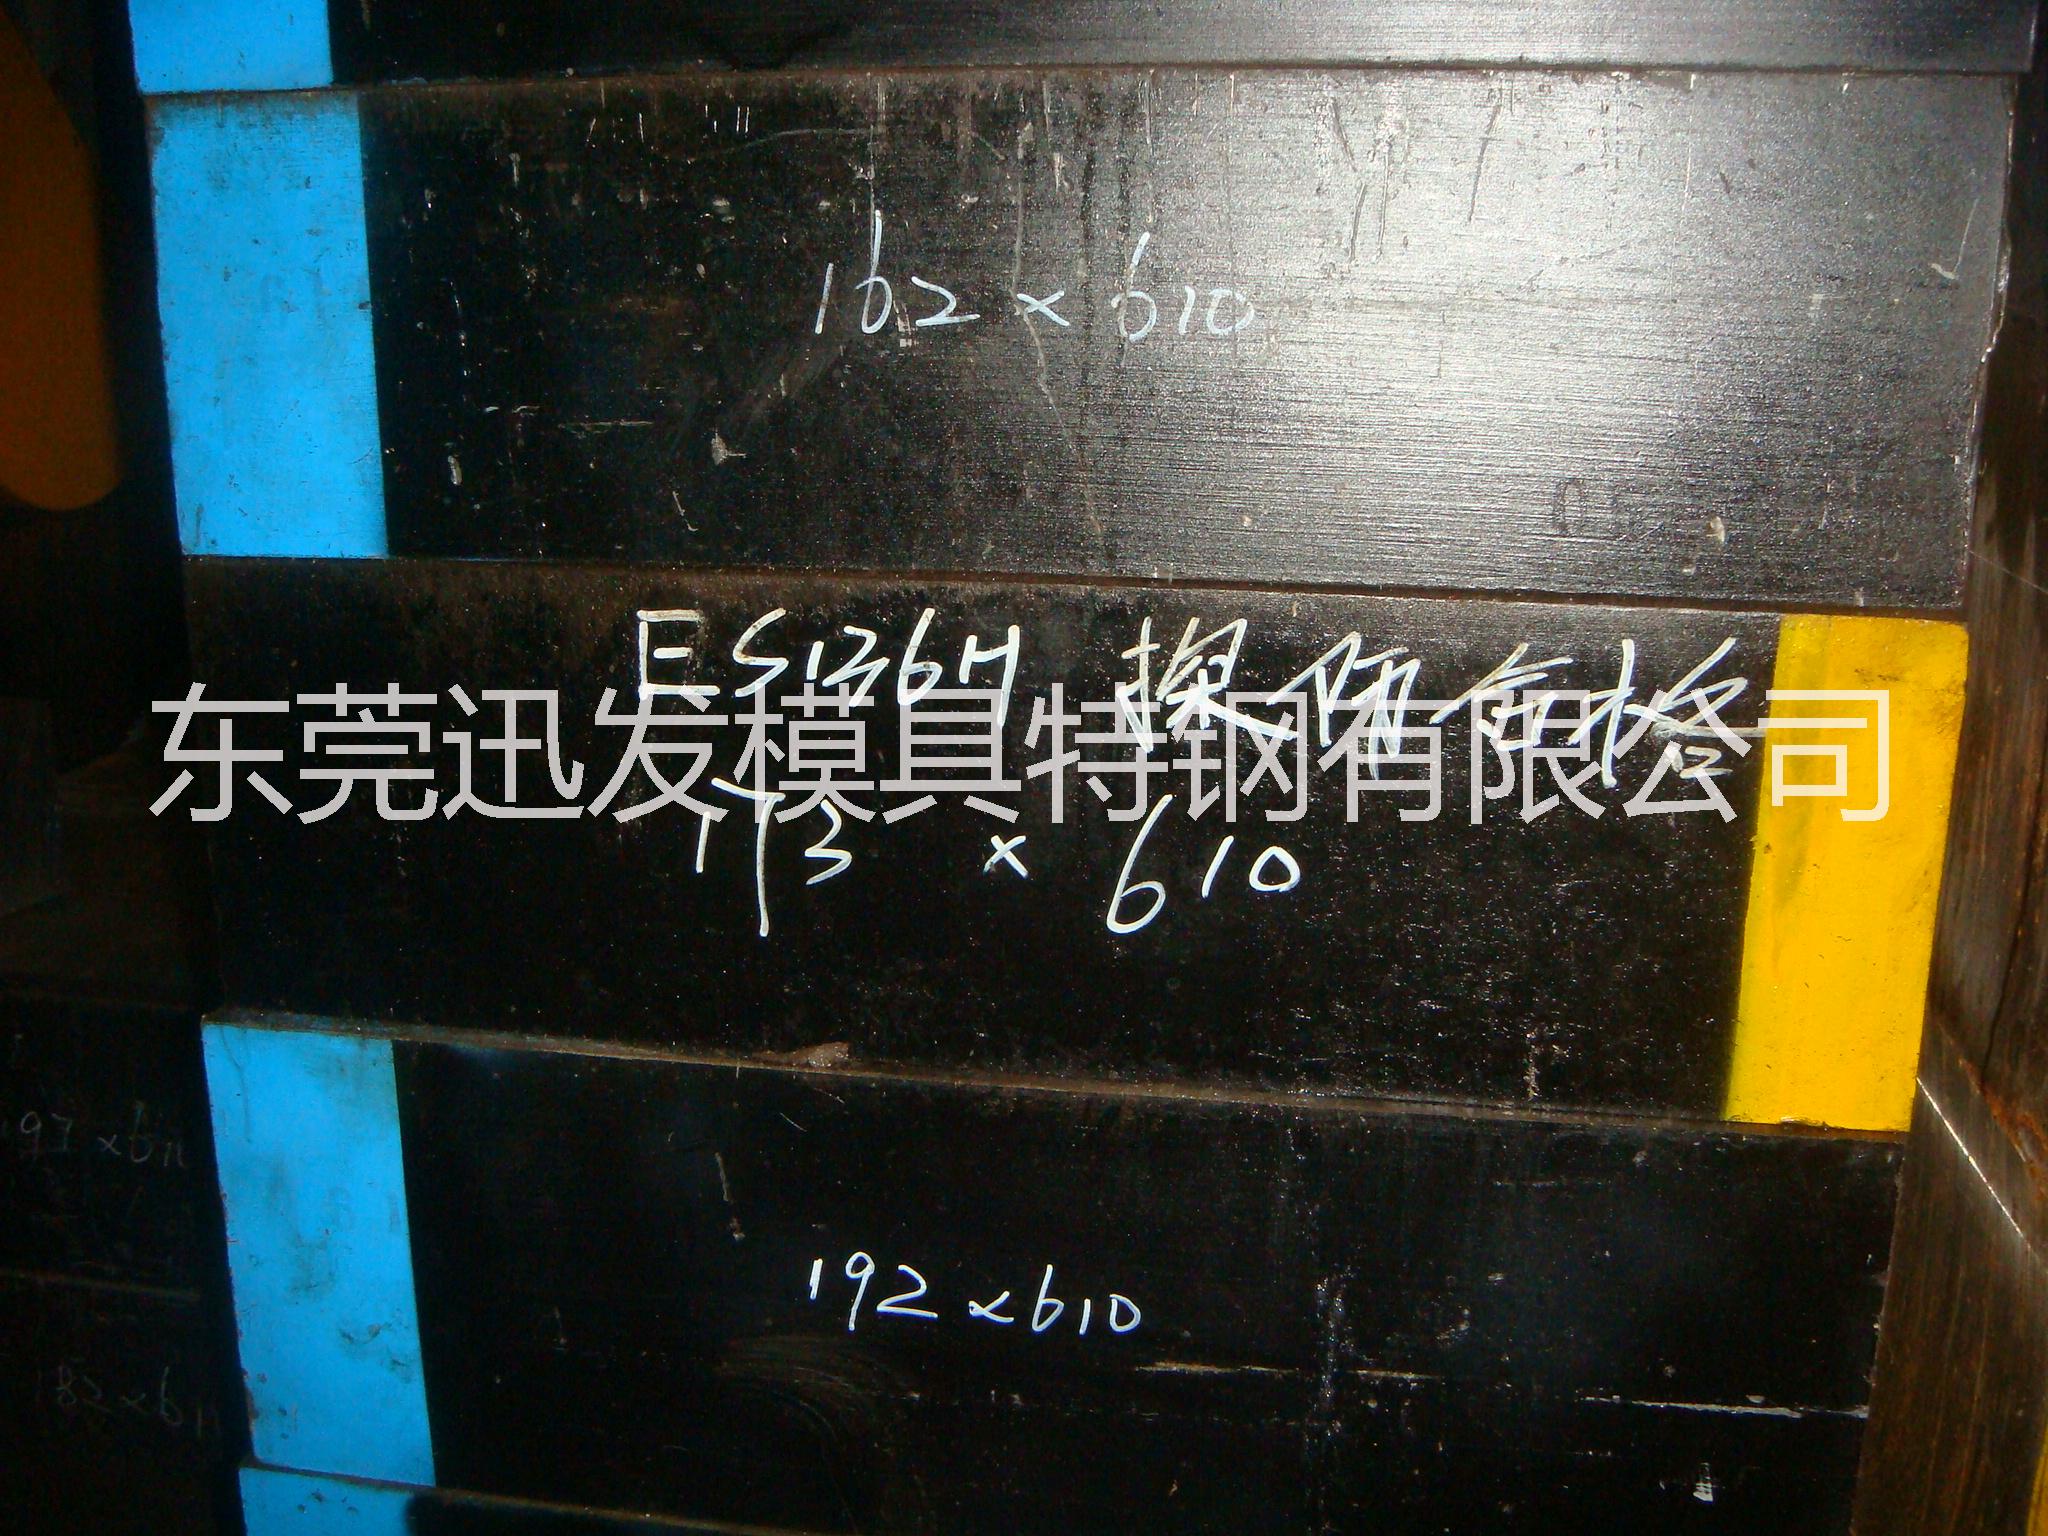 162 × 610
ES136H 探伤合格
东莞迅发模具特钢有限公司
173 × 610
197×611
192×610
182×611